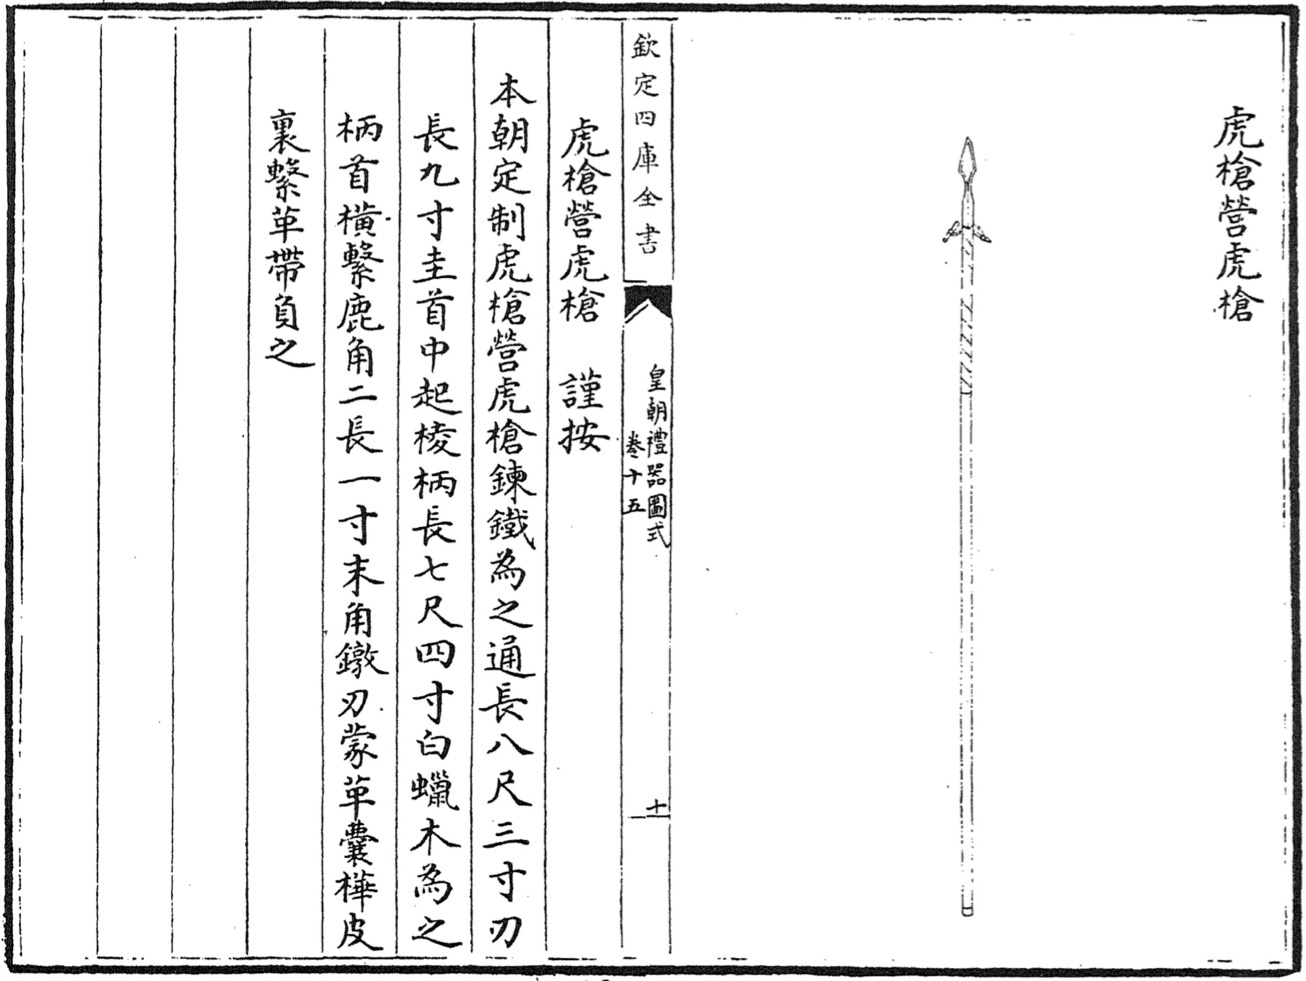 虎槍營虎槍
欽定四庫全書
皇朝禮器圖式
卷十五
十
虎槍營虎槍　謹按
本朝定制虎槍營虎槍鍊鐵為之通長八尺三寸刃
長九寸圭首中起棱柄長七尺四寸白蠟木為之
柄首橫繫鹿角二長一寸末角鐓刃蒙革囊樺皮
裏繫革帶負之